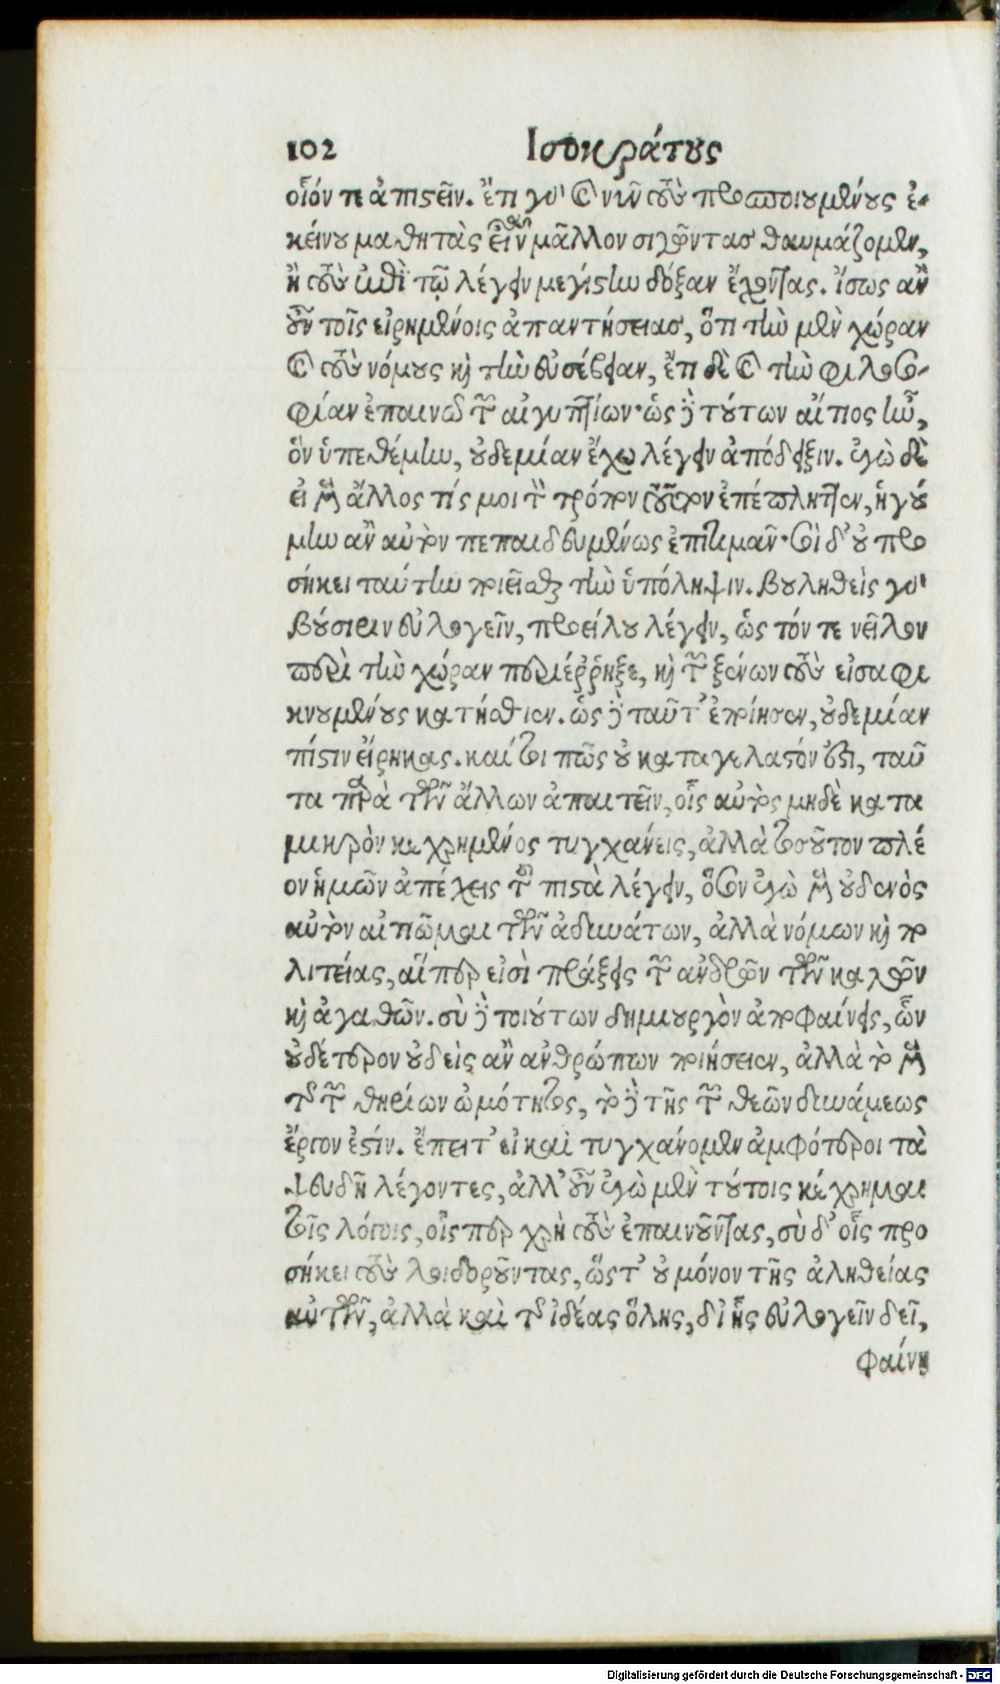 102 Ισοκράτους
οἷόν τε ἀπιστεῖν. ἔτι γὰρ καὶ νῦν τοὺς προσποιουμένους ἐ-
κείνου μαθητὰς εἶναι μᾶλλον σιγῶντας θαυμάζομεν,
ἢ τοὺς ἐπὶ τῷ λέγειν μεγίστην δόξαν ἔχοντας. ἴσως ἂν
οὖν τοῖς εἰρημένοις ἀπαντήσειας, ὅτι τὴν μὲν χώραν
καὶ τοὺς νόμους καὶ τὴν εὐσέβειαν, ἔτι δὲ καὶ τὴν φιλοσο-
φίαν ἐπαινῶ τῶν αἰγυπτίων· ὡς δὲ τούτων αἴτιος ἦν,
ὃν ὑπεθέμην, οὐδεμίαν ἔχω λέγειν ἀπόδειξιν. ἐγὼ δὲ
εἰ μὲν ἄλλος τίς μοι τὸν τρόπον τοῦτον ἐπέπληττεν, ἡγού
μην ἂν αὐτὸν πεπαιδευμένως ἐπιτιμᾶν· σοὶ δ' οὐ προ
σήκει ταύτην ποιεῖσθαι τὴν ὑπόληψιν. βουληθεὶς γὰρ
βούσιριν εὐλογεῖν, προείλου λέγειν, ὡς τόν τε νεῖλον
περὶ τὴν χώραν περιέῤῥηξε, καὶ τῶν ξένων τοὺς εἰσαφι
κνουμένους κατήσθιεν. ὡς δὲ ταῦτ' ἐποίησεν, οὐδεμίαν
πίστιν εἴρηκας. καίτοι πῶς οὐ καταγελαστόν ἐστι, ταῦ
τα παρὰ τῶν ἄλλων ἀπαιτεῖν, οἷς αὐτὸς μηδὲ κατα
μικρὸν κεχρημένος τυγχάνεις, ἀλλὰ τοσοῦτον πλέ
ον ἡμῶν ἀπέχεις τοῦ πιστὰ λέγειν, ὅσον ἐγὼ μὲν οὐδενὸς
αὐτὸν αἰτιῶμαι τῶν ἀδυνάτων, ἀλλὰ νόμων καὶ πο
λιτείας, αἵπερ εἰσὶ πράξεις τῶν ἀνδρῶν τῶν καλῶν
καὶ ἀγαθῶν. σὺ δὲ τοιούτων δημιουργὸν ἀποφαίνεις, ὧν
οὐδέτερον οὐδεὶς ἂν ἀνθρώπων ποιήσειεν, ἀλλὰ τὸ μὲν
τῆς τῶν θηρίων ὠμότητος, τὸ δὲ τῆς τῶν θεῶν δυνάμεως
ἔργον ἐστίν. ἔπειτ' εἰ καὶ τυγχάνομεν ἀμφότεροι τὰ
ψευδῆ λέγοντες, ἀλλ' οὖν ἐγὼ μὲν τούτοις κέχρημαι
τοῖς λόγοις, οἷσπερ χρὴ τοὺς ἐπαινοῦντας, σὺ δ' οἷς προ
σήκει τοὺς λοιδοροῦντας, ὥστ' οὐ μόνον τῆς ἀληθείας
αὐτῶν, ἀλλὰ καὶ τῆς ἰδέας ὅλης, δι' ἧς εὐλογεῖν δεῖ,
φαίνῃ
Digitalisierung gefördert durch die Deutsche Forschungsgemeinschaft - DFG